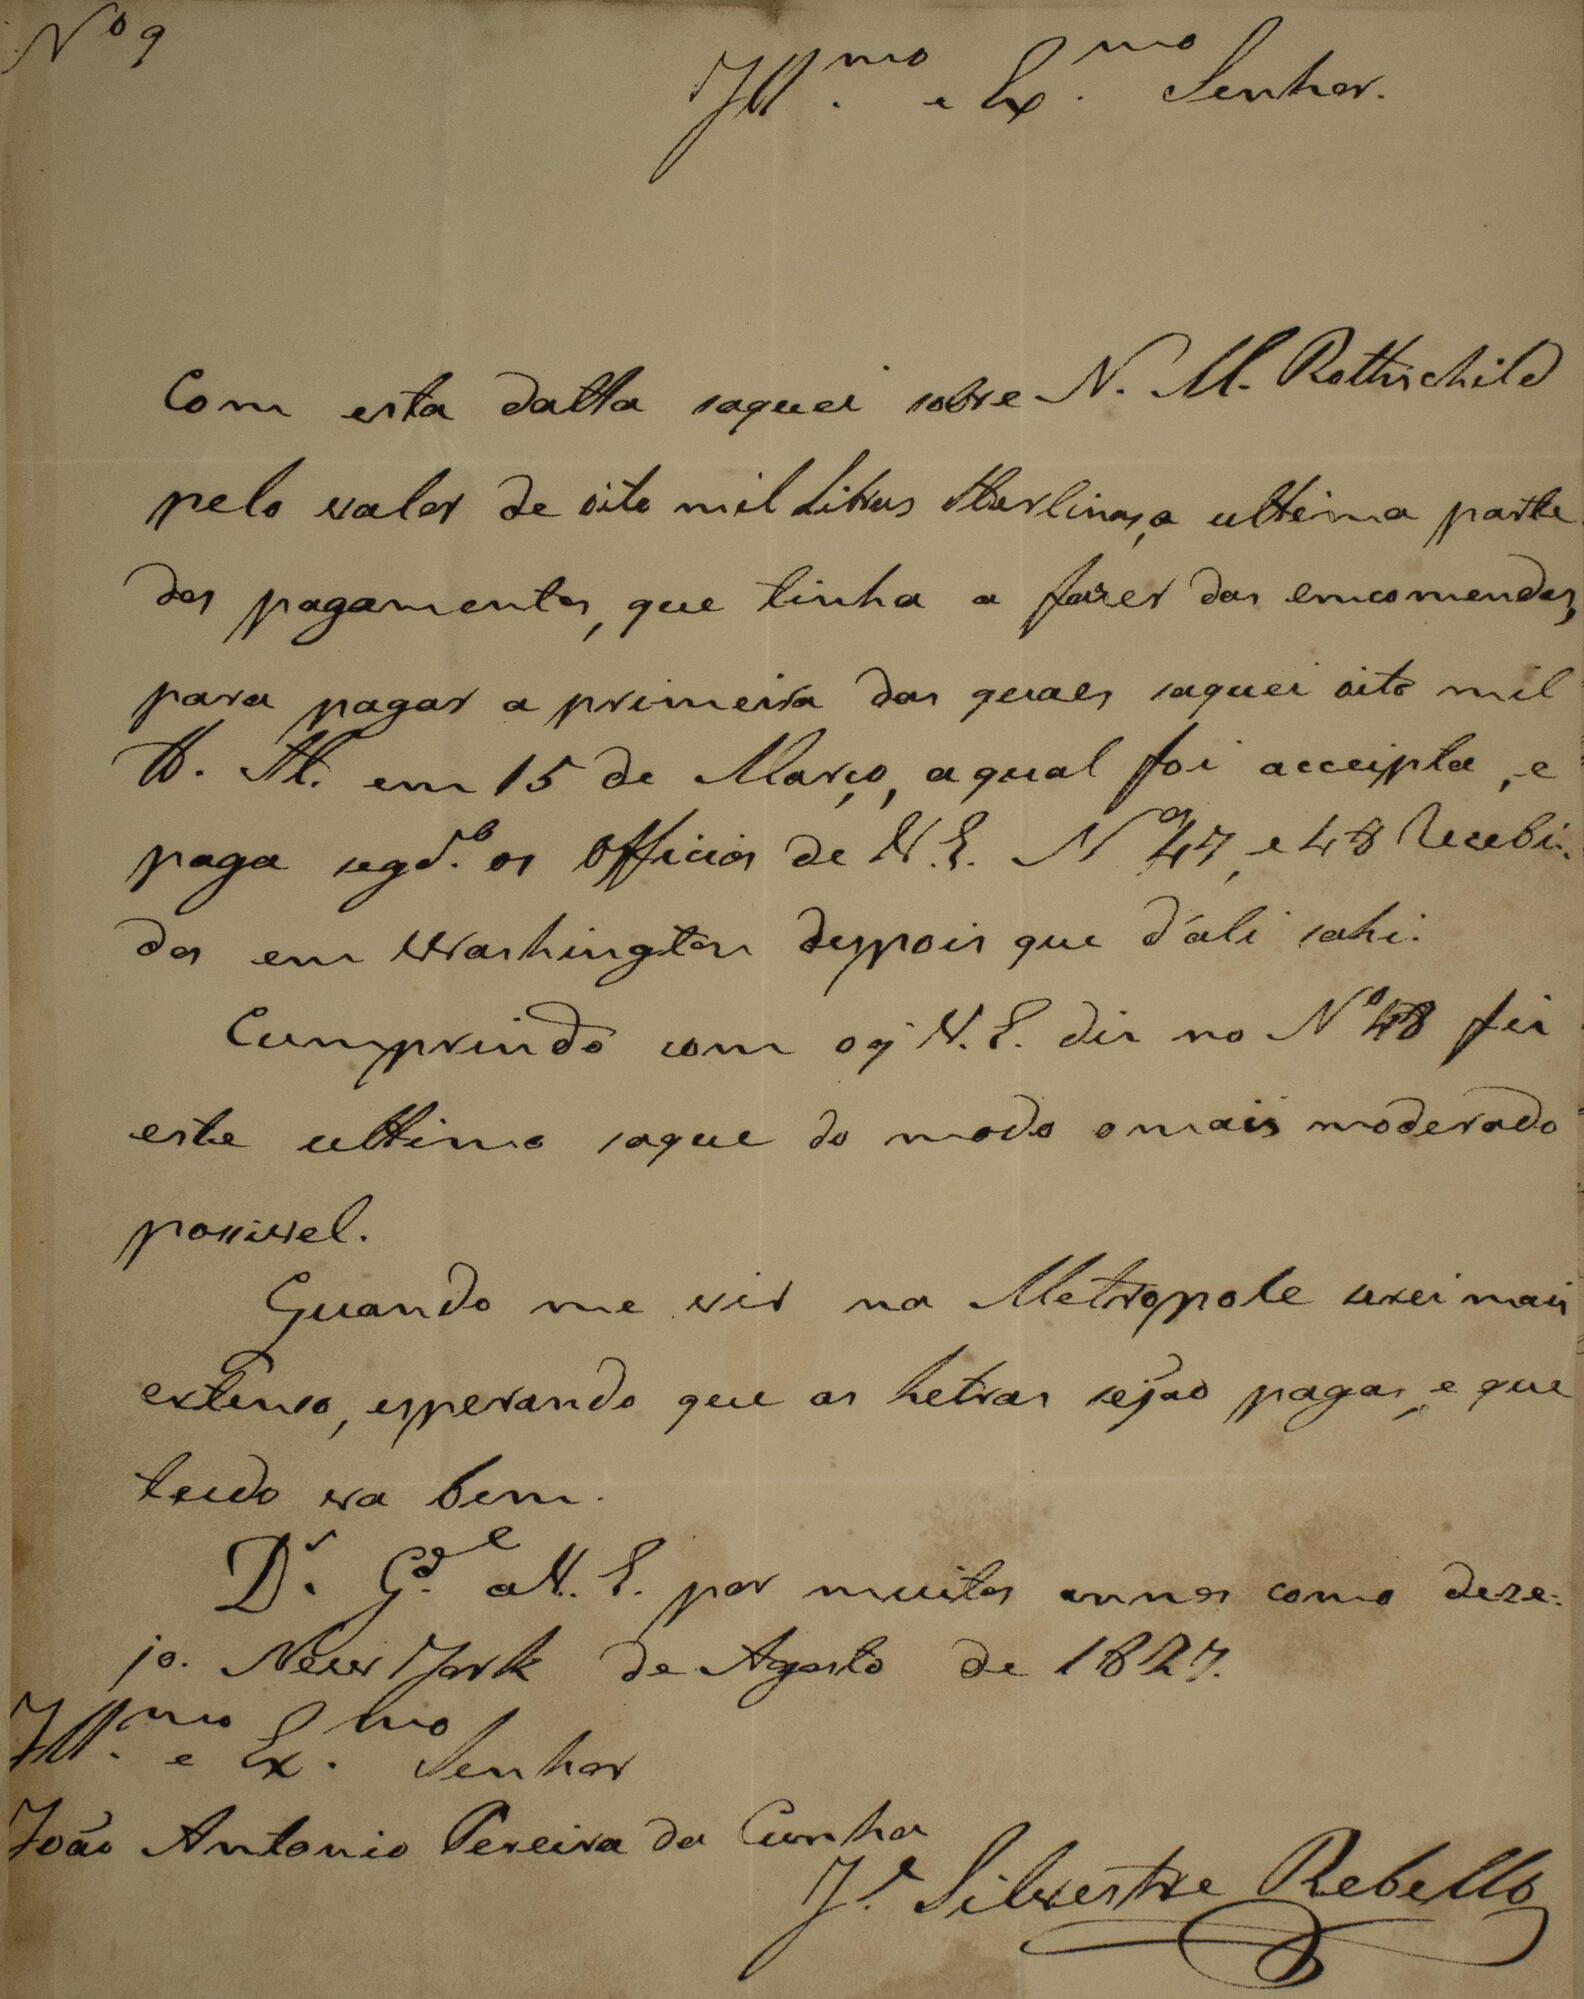 Nº 9
Ill.mo e Ex.mo Senhor.
Com esta datta saquei sobre N. M. Rothschild
pelo valor de oito mil Libras Sterlinas, a ultima parte
dos pagamentos, que tinha a fazer das emcomendas,
para pagar a primeira das quaes saquei oito mil
lb. St. em 15 de Março, aqual foi acceipta, e
paga segd.º os Officios de V. E. Nos 47, e 48 Recebi-
dos em Washington depois que d'ali sahi.
Cumprindo com oq̃ V. E. diz no Nº 48 fiz
este ultimo saque do modo omais moderado
possivel.
Quando me vir na Metropole serei mais
extenso, esperando que as Letras sejão pagas, e que
tudo va bem.
D.s G.de aV. E. por muitos annos como deze-
jo. New York de Agosto de 1827.
Ill.mo e Ex.mo Senhor
João Antonio Pereira da Cunha
J.e Silvestre Rebello